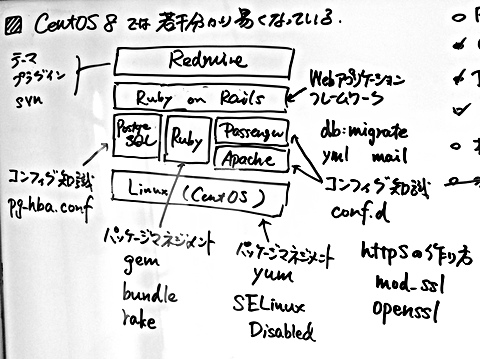 CentOS 8 では 若干分かり易くなっている.
テーマ
プラグイン
svn
Redmine
Ruby on Rails
Webアプリケーション
フレームワーク
db:migrate
yml mail
Postgre
SQL
Ruby
Passenger
Apache
Linux (CentOS)
コンフィグ知識
pg-hba.conf
コンフィグ知識
conf.d
パッケージマネジメント
gem
bundle
rake
パッケージマネジメント
yum
SELinux
Disabled
httpsの作り方
mod_ssl
openssl